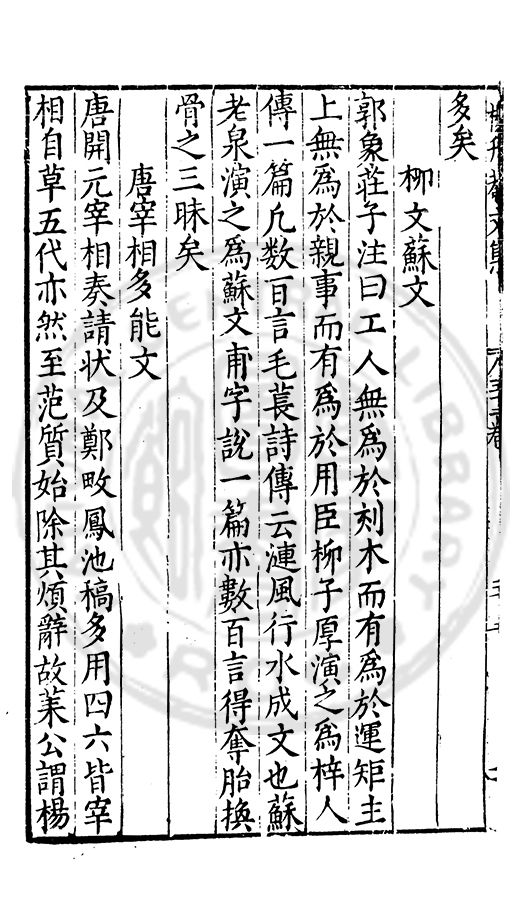 多矣
柳文蘇文
郭象莊子注曰工人無爲於刻木而有爲於運矩主
上無爲於親事而有爲於用臣柳子厚演之爲梓人
傳一篇凢数百言毛萇詩傳云漣風行水成文也蘇
老泉演之爲蘇文甫字說一篇亦數百言得奪胎換
骨之三昧矣
唐宰相多能文
唐開元宰相奏請状及鄭畋鳳池稿多用四六皆宰
相自草五代亦然至范質始除其煩辭故萊公謂楊